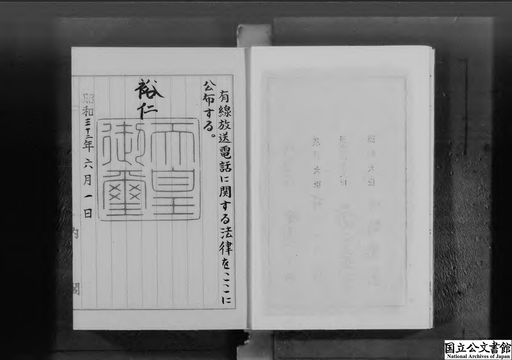 有線放送電話に関する法律をここに
公布する。
裕仁
天皇御璽
昭和三十二年六月一日
内閣
国立公文書館
National Archives of Japan